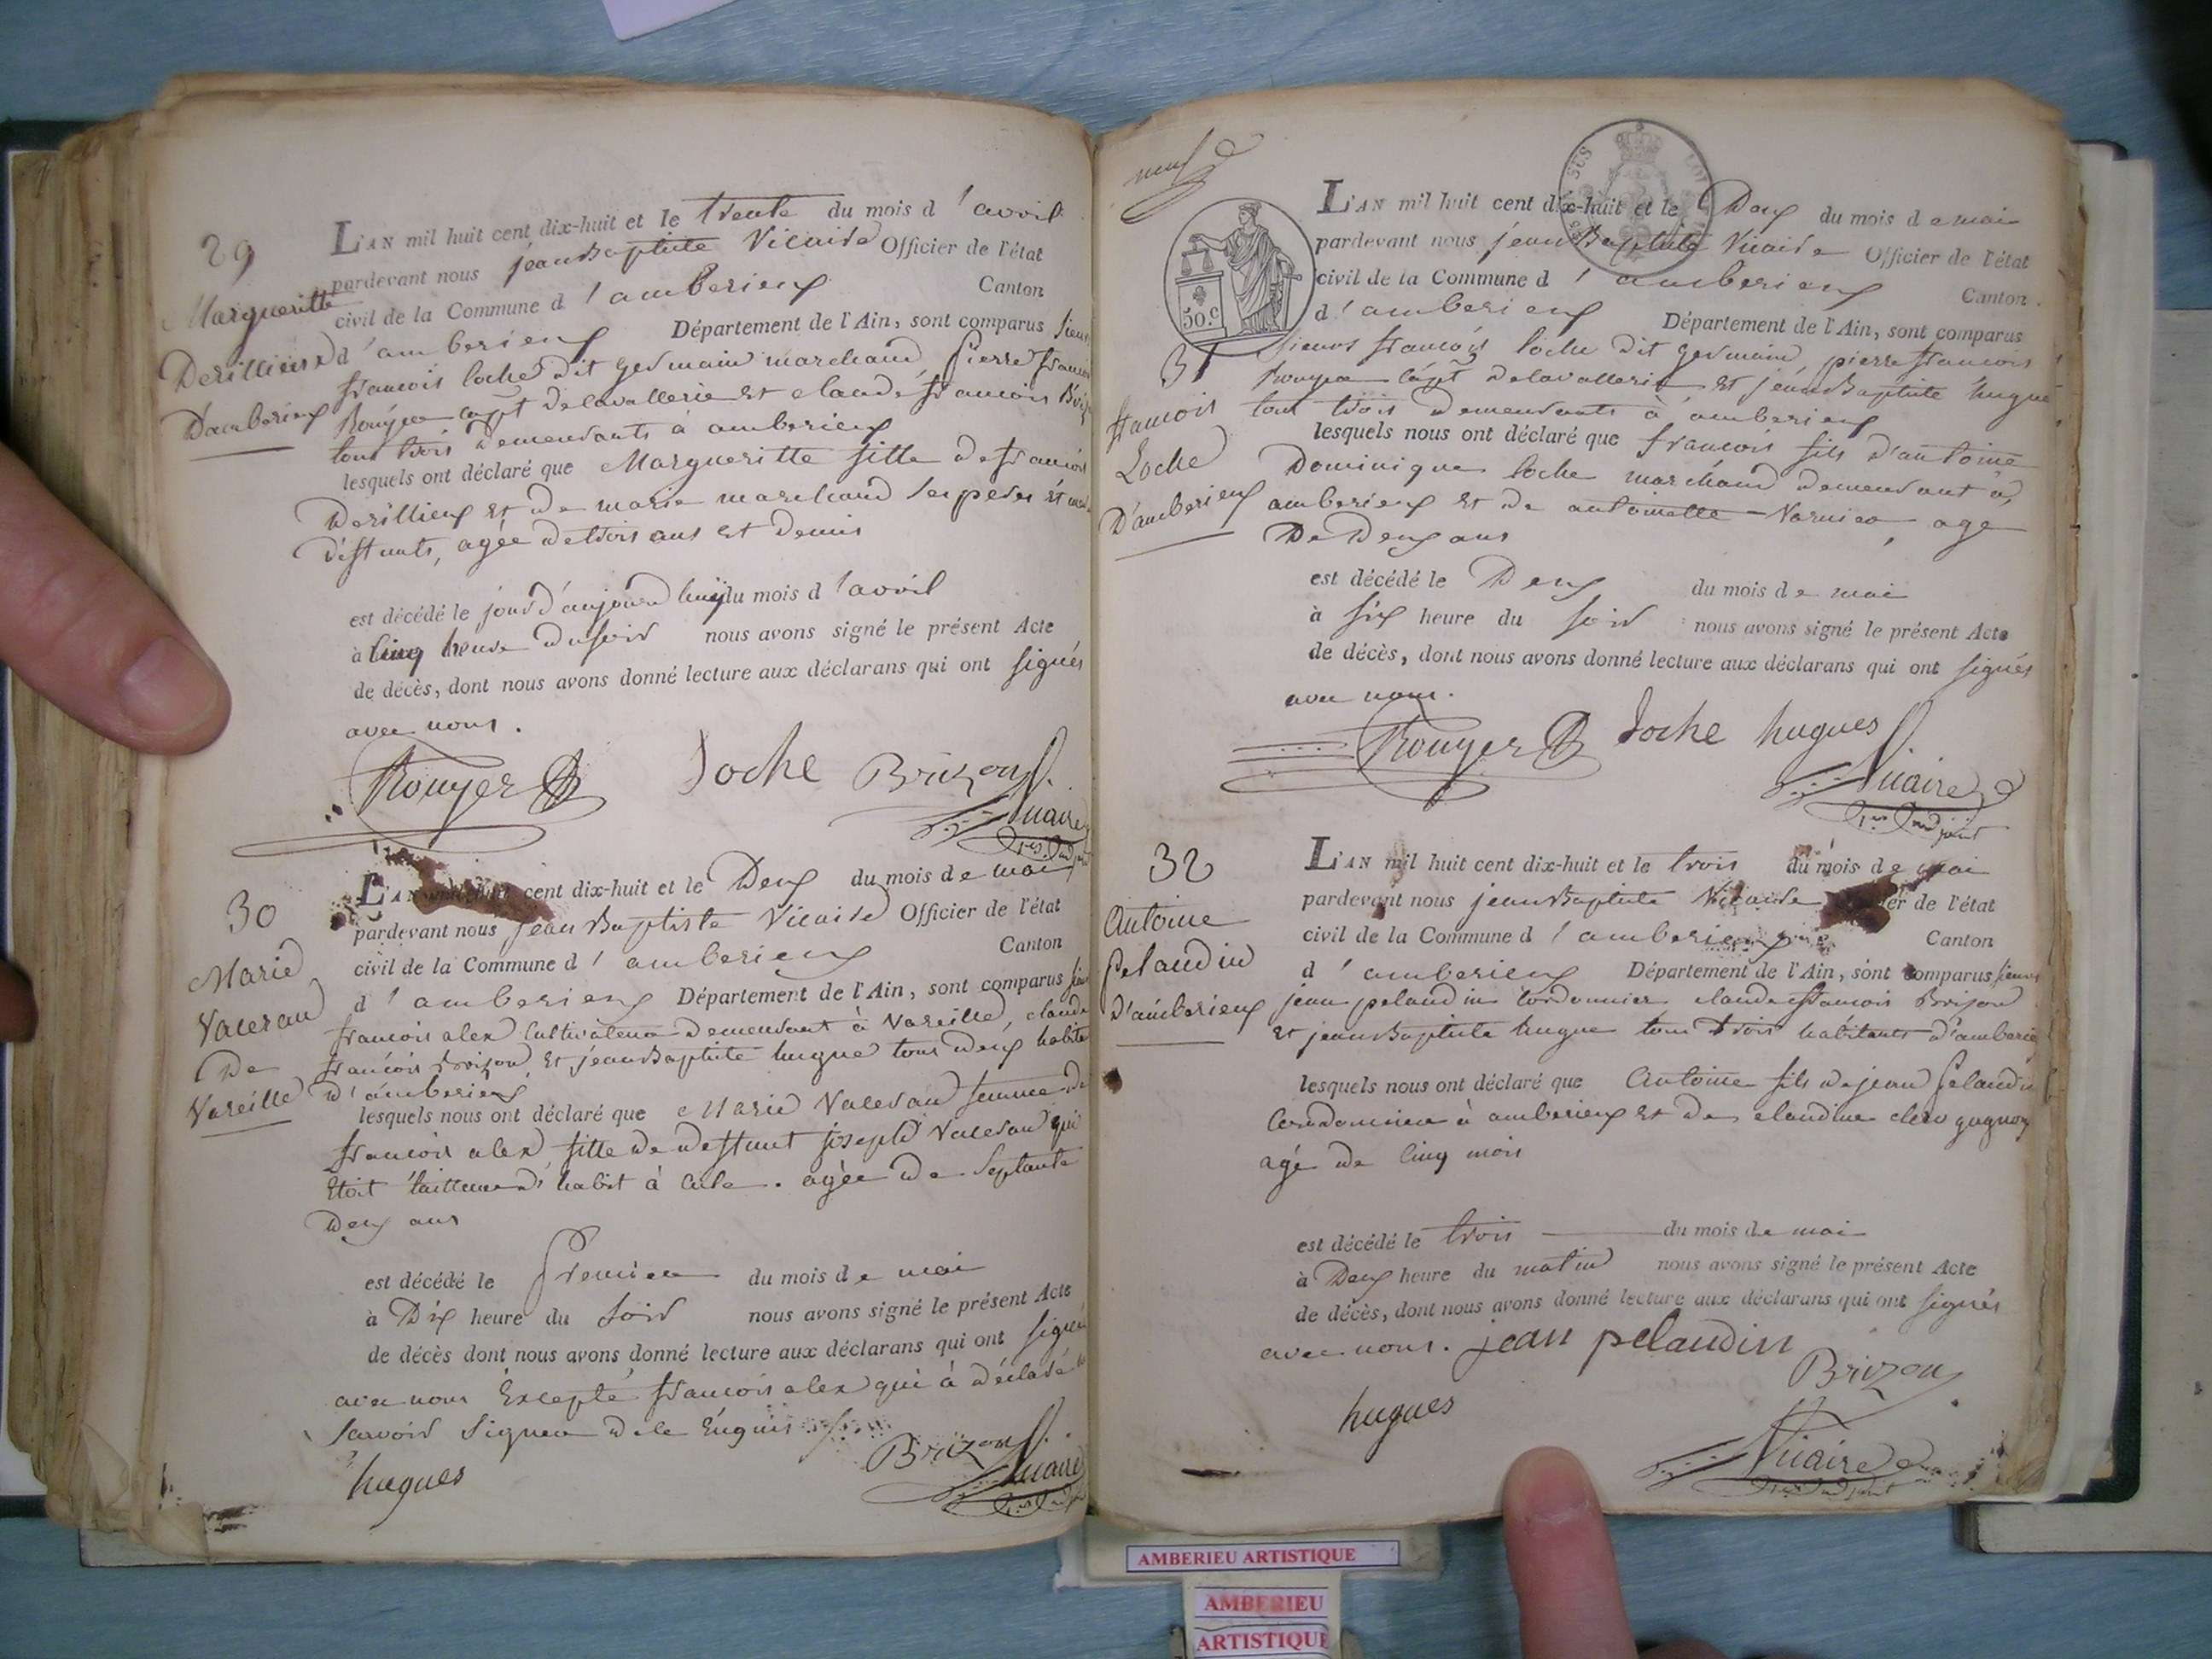 29
Margueritte
Derillieux
D'amberieux
L'AN mil huit cent dix-huit et le trente du mois d'avril
pardevant nous jean Baptiste Vicaire Officier de l'état
civil de la Commune d'amberieux Canton
d'amberieux Département de l'Ain, sont comparus sieurs
francois loche dit germain marchand pierre francois
Rouyer capt de cavallerie et claude francois
tous trois demeurants à amberieux
lesquels ont déclaré que Margueritte fille de francois
Derillieux et de marie marchand ses peres et
deffunts, agée de trois ans et demis
est décédé le jour d'aujourd'huy du mois d'avril
à cinq heure du soir nous avons signé le présent Acte
de décès, dont nous avons donné lecture aux déclarans qui ont signés
avec nous.
Rouyer Loche Brizon
Vicaire
1er adjoint
30
Marie
Valeran
De
Vareille
L'AN cent dix-huit et le Deux du mois de mai
pardevant nous jean Baptiste Vicaire Officier de l'état
civil de la Commune d'amberieux Canton
d'amberieux Département de l'Ain, sont comparus
francois alex cultivateur demeurant à Vareille, claude
francois brizon et jean Baptiste hugue tous deux
d'amberieux
lesquels nous ont déclaré que Marie Valeran femme de
francois alex fille de deffunt joseph Valeran qui
etoit tailleur d'habit à . agée de septante
deux ans
est décédé le premier du mois de mai
à Dix heure du soir nous avons signé le présent Acte
de décès dont nous avons donné lecture aux déclarans qui ont signés
avec nous Excepté francois alex qui à déclaré
savoir signer de ce Enquis
hugues Brizon
Vicaire
1er adjoint
neuf
50.c
31
francois
Loche
D'amberieux
L'AN mil huit cent dix-huit et le Deux du mois de mai
pardevant nous jean Baptiste Vicaire Officier de l'état
civil de la Commune d'amberieux Canton
d'amberieux Département de l'Ain, sont comparus
sieurs francois loche dit germain, pierre francois
Rouyer capt de cavallerie et jean Baptiste hugue
tous trois demeurants à amberieux
lesquels nous ont déclaré que francois fils d'antoine
Dominique loche marchand demeurant à
amberieux et de antoinette Varnier, age
De Deux ans
est décédé le Deux du mois de mai
à six heure du soir nous avons signé le présent Acte
de décès, dont nous avons donné lecture aux déclarans qui ont signés
avec nous.
Rouyer Loche hugues
Vicaire
1er adjoint
32
Antoine
pelaudin
D'amberieux
L'AN mil huit cent dix-huit et le trois du mois de mai
pardevant nous jean Baptiste Vicaire de l'état
civil de la Commune d'amberieux Canton
d'amberieux Département de l'Ain, sont comparus sieurs
jean pelaudin cordonnier claude francois Brizon
et jean Baptiste hugue tous trois habitants d'amberieux
lesquels nous ont déclaré que Antoine fils de jean pelaudin
cordonnier à amberieux et de claudine
agé de cinq mois
est décédé le trois du mois de mai
à Deux heure du matin nous avons signé le présent Acte
de décès, dont nous avons donné lecture aux déclarans qui ont signés
avec nous. jean pelaudin
Brizon
hugues
Vicaire
1er adjoint
AMBERIEU ARTISTIQUE
AMBERIEU
ARTISTIQUE